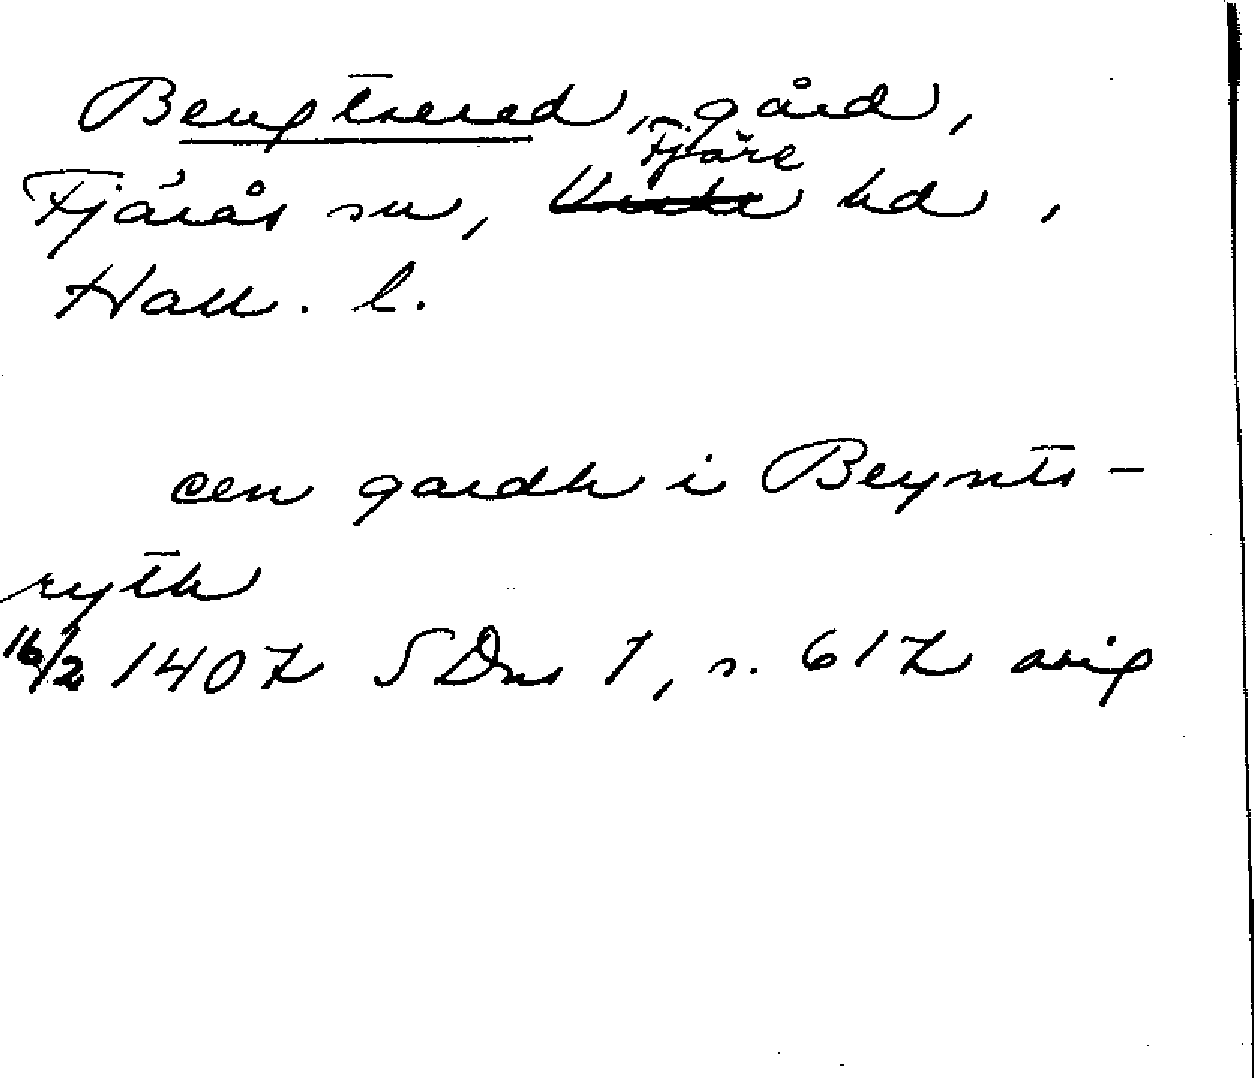 Bengtsered, gård,
Fjärås sn, Fjäre hd,
Hall. l.
een gardh i Beynts-
ryth
16/2 1407 SDns 1, s. 617 orig